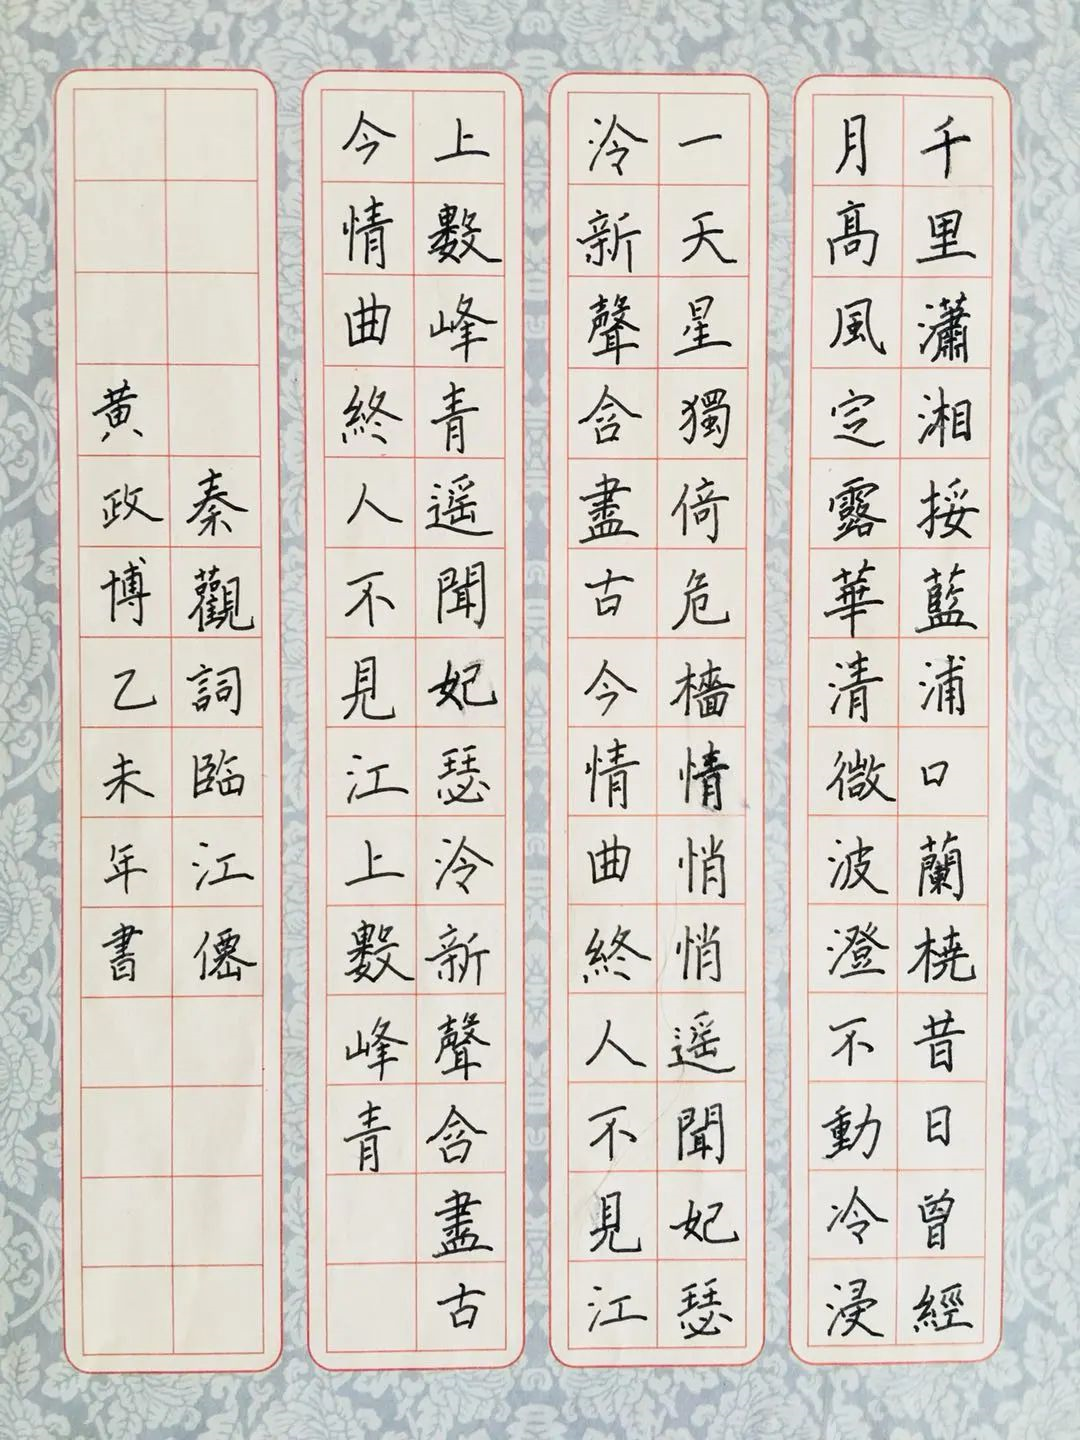 千里瀟湘挼藍浦口蘭橈昔日曾經
月髙風定露華清微波澄不動冷浸
一天星獨倚危檣情悄悄遥聞妃瑟
泠新聲含盡古今情曲終人不見江
上數峰青遥聞妃瑟泠新聲含盡古
今情曲終人不見江上數峰青
秦觀詞臨江僊
黄政博乙未年書